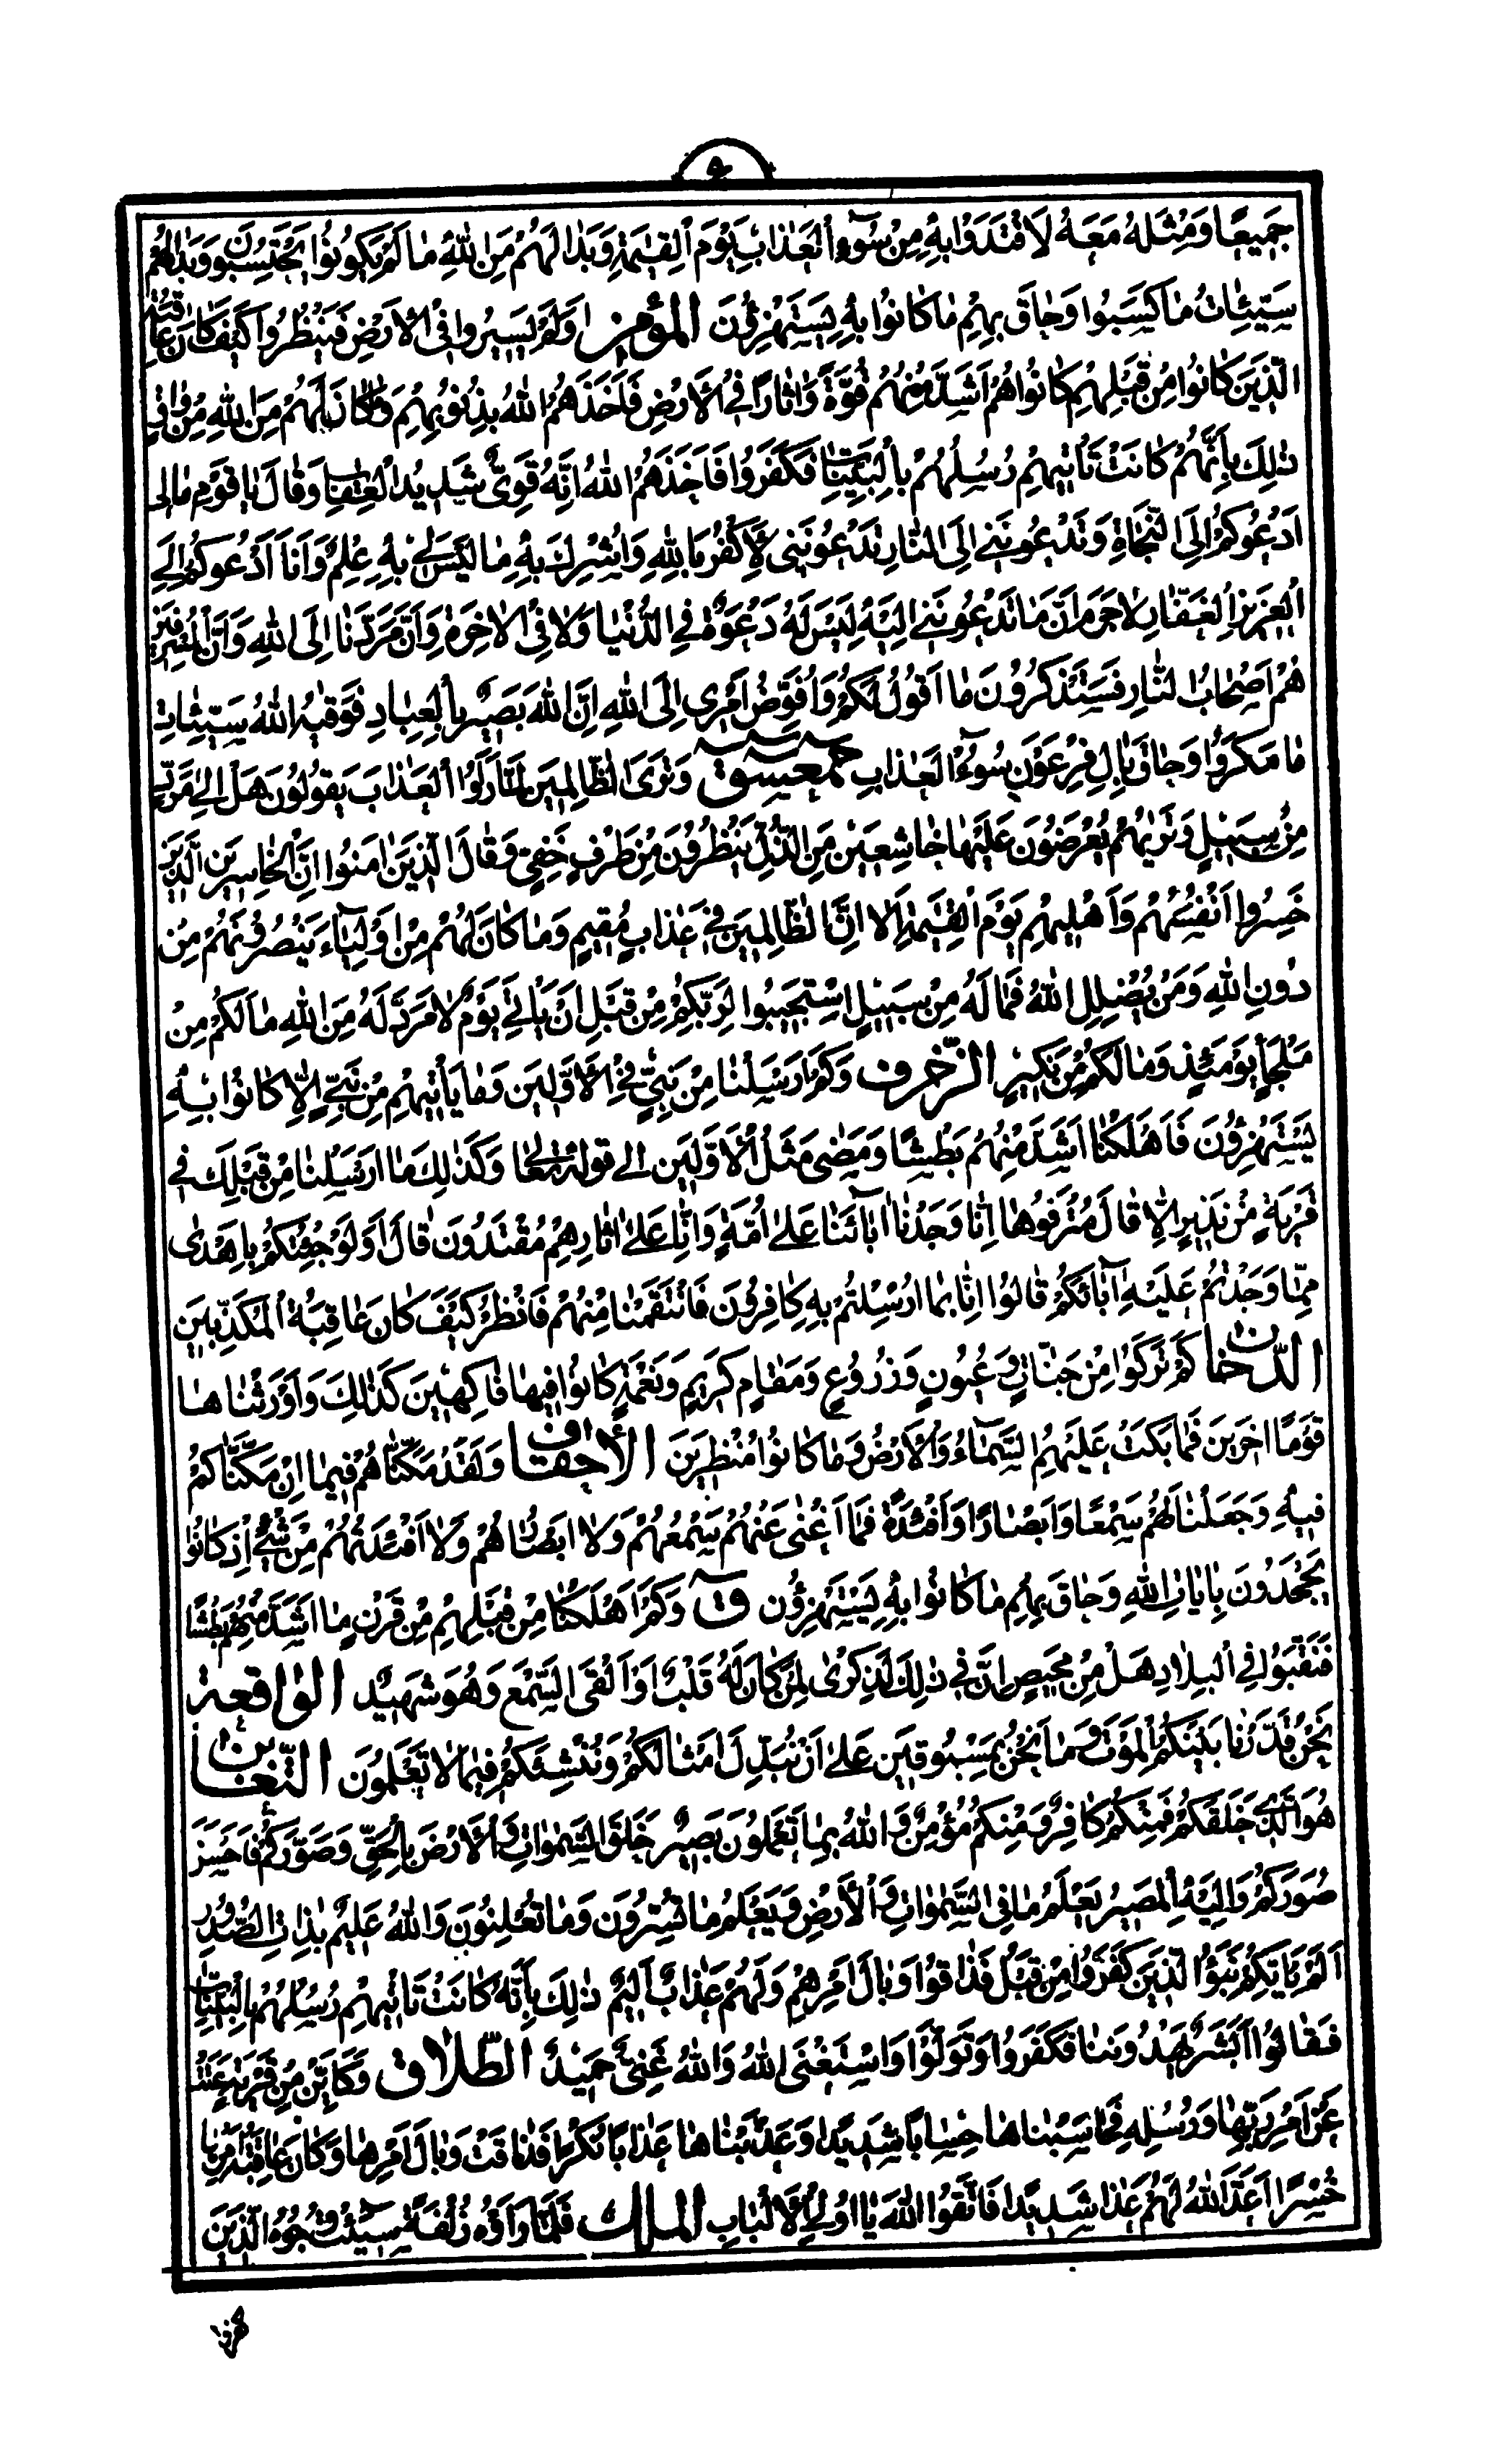 ۹
جَمِيعًا وَمِثْلَهُ مَعَهُ لَافْتَدَوْا بِهِ مِنْ سُوءِ الْعَذَابِ يَوْمَ الْقِيٰمَةِ وَبَدَا لَهُمْ مِنَ اللهِ مَا لَمْ يَكُونُوا يَحْتَسِبُونَ وَبَدَا لَهُمْ
سَيِّئَاتُ مَا كَسَبُوا وَحَاقَ بِهِمْ مَا كَانُوا بِهِ يَسْتَهْزِؤُنَ المؤمن اَوَلَمْ يَسِيرُوا فِى الْاَرْضِ فَيَنْظُرُوا كَيْفَ كَانَ عَاقِبَةُ
الَّذِينَ كَانُوا مِنْ قَبْلِهِمْ كَانُوا هُمْ اَشَدَّ مِنْهُمْ قُوَّةً وَاٰثَارًا فِى الْاَرْضِ فَاَخَذَهُمُ اللهُ بِذُنُوبِهِمْ وَمَا كَانَ لَهُمْ مِنَ اللهِ مِنْ وَاقٍ
ذٰلِكَ بِاَنَّهُمْ كَانَتْ تَأْتِيهِمْ رُسُلُهُمْ بِالْبَيِّنَاتِ فَكَفَرُوا فَاَخَذَهُمُ اللهُ اِنَّهُ قَوِىٌّ شَدِيدُ الْعِقَابِ وَقَالَ يَا قَوْمِ مَا لِى
اَدْعُوكُمْ اِلَى النَّجَاةِ وَتَدْعُونَنِى اِلَى النَّارِ تَدْعُونَنِى لِاَكْفُرَ بِاللهِ وَاُشْرِكَ بِهِ مَا لَيْسَ لِى بِهِ عِلْمٌ وَاَنَا اَدْعُوكُمْ اِلَى
الْعَزِيزِ الْغَفَّارِ لَا جَرَمَ اَنَّ مَا تَدْعُونَنِى اِلَيْهِ لَيْسَ لَهُ دَعْوَةٌ فِى الدُّنْيَا وَلَا فِى الْاٰخِرَةِ وَاَنَّ مَرَدَّنَا اِلَى اللهِ وَاَنَّ الْمُسْرِفِينَ
هُمْ اَصْحَابُ النَّارِ فَسَتَذْكُرُونَ مَا اَقُولُ لَكُمْ وَاُفَوِّضُ اَمْرِى اِلَى اللهِ اِنَّ اللهَ بَصِيرٌ بِالْعِبَادِ فَوَقٰيهُ اللهُ سَيِّئَاتِ
مَا مَكَرُوا وَحَاقَ بِاٰلِ فِرْعَوْنَ سُوءُ الْعَذَابِ حمعسق وَتَرَى الظَّالِمِينَ لَمَّا رَاَوُا الْعَذَابَ يَقُولُونَ هَلْ اِلٰى مَرَدٍّ
مِنْ سَبِيلٍ وَتَرٰيهُمْ يُعْرَضُونَ عَلَيْهَا خَاشِعِينَ مِنَ الذُّلِّ يَنْظُرُونَ مِنْ طَرْفٍ خَفِىٍّ وَقَالَ الَّذِينَ اٰمَنُوا اِنَّ الْخَاسِرِينَ الَّذِينَ
خَسِرُوا اَنْفُسَهُمْ وَاَهْلِيهِمْ يَوْمَ الْقِيٰمَةِ اَلَا اِنَّ الظَّالِمِينَ فِى عَذَابٍ مُقِيمٍ وَمَا كَانَ لَهُمْ مِنْ اَوْلِيَاءَ يَنْصُرُونَهُمْ مِنْ
دُونِ اللهِ وَمَنْ يُضْلِلِ اللهُ فَمَا لَهُ مِنْ سَبِيلٍ اِسْتَجِيبُوا لِرَبِّكُمْ مِنْ قَبْلِ اَنْ يَأْتِىَ يَوْمٌ لَا مَرَدَّ لَهُ مِنَ اللهِ مَا لَكُمْ مِنْ
مَلْجَاٍ يَوْمَئِذٍ وَمَا لَكُمْ مِنْ نَكِيرٍ الزّخرف وَكَمْ اَرْسَلْنَا مِنْ نَبِىٍّ فِى الْاَوَّلِينَ وَمَا يَأْتِيهِمْ مِنْ نَبِىٍّ اِلَّا كَانُوا بِهِ
يَسْتَهْزِؤُنَ فَاَهْلَكْنَا اَشَدَّ مِنْهُمْ بَطْشًا وَمَضٰى مَثَلُ الْاَوَّلِينَ الى قوله تعالى وَكَذٰلِكَ مَا اَرْسَلْنَا مِنْ قَبْلِكَ فِى
قَرْيَةٍ مِنْ نَذِيرٍ اِلَّا قَالَ مُتْرَفُوهَا اِنَّا وَجَدْنَا اٰبَائَنَا عَلٰى اُمَّةٍ وَاِنَّا عَلٰى اٰثَارِهِمْ مُقْتَدُونَ قَالَ اَوَلَوْ جِئْتُكُمْ بِاَهْدٰى
مِمَّا وَجَدْتُمْ عَلَيْهِ اٰبَائَكُمْ قَالُوا اِنَّا بِمَا اُرْسِلْتُمْ بِهِ كَافِرُونَ فَانْتَقَمْنَا مِنْهُمْ فَانْظُرْ كَيْفَ كَانَ عَاقِبَةُ الْمُكَذِّبِينَ
الدّخان كَمْ تَرَكُوا مِنْ جَنَّاتٍ وَعُيُونٍ وَزُرُوعٍ وَمَقَامٍ كَرِيمٍ وَنَعْمَةٍ كَانُوا فِيهَا فَاكِهِينَ كَذٰلِكَ وَاَوْرَثْنَاهَا
قَوْمًا اٰخَرِينَ فَمَا بَكَتْ عَلَيْهِمُ السَّمَاءُ وَالْاَرْضُ وَمَا كَانُوا مُنْظَرِينَ الأحقاف وَلَقَدْ مَكَّنَّاهُمْ فِيمَا اِنْ مَكَّنَّاكُمْ
فِيهِ وَجَعَلْنَا لَهُمْ سَمْعًا وَاَبْصَارًا وَاَفْئِدَةً فَمَا اَغْنٰى عَنْهُمْ سَمْعُهُمْ وَلَا اَبْصَارُهُمْ وَلَا اَفْئِدَتُهُمْ مِنْ شَىْءٍ اِذْ كَانُوا
يَجْحَدُونَ بِاٰيَاتِ اللهِ وَحَاقَ بِهِمْ مَا كَانُوا بِهِ يَسْتَهْزِؤُنَ قٓ وَكَمْ اَهْلَكْنَا مِنْ قَبْلِهِمْ مِنْ قَرْنٍ مَا اَشَدَّ مِنْهُمْ بَطْشًا
فَنَقَّبُوا فِى الْبِلَادِ هَلْ مِنْ مَحِيصٍ اِنَّ فِى ذٰلِكَ لَذِكْرٰى لِمَنْ كَانَ لَهُ قَلْبٌ اَوْ اَلْقَى السَّمْعَ وَهُوَ شَهِيدٌ الواقعة
نَحْنُ قَدَّرْنَا بَيْنَكُمُ الْمَوْتَ وَمَا نَحْنُ بِمَسْبُوقِينَ عَلٰى اَنْ نُبَدِّلَ اَمْثَالَكُمْ وَنُنْشِئَكُمْ فِيمَا لَا تَعْلَمُونَ التّغابن
هُوَ الَّذِى خَلَقَكُمْ فَمِنْكُمْ كَافِرٌ وَمِنْكُمْ مُؤْمِنٌ وَاللهُ بِمَا تَعْمَلُونَ بَصِيرٌ خَلَقَ السَّمٰوَاتِ وَالْاَرْضَ بِالْحَقِّ وَصَوَّرَكُمْ فَاَحْسَنَ
صُوَرَكُمْ وَاِلَيْهِ الْمَصِيرُ يَعْلَمُ مَا فِى السَّمٰوَاتِ وَالْاَرْضِ وَيَعْلَمُ مَا تُسِرُّونَ وَمَا تُعْلِنُونَ وَاللهُ عَلِيمٌ بِذَاتِ الصُّدُورِ
اَلَمْ يَأْتِكُمْ نَبَؤُا الَّذِينَ كَفَرُوا مِنْ قَبْلُ فَذَاقُوا وَبَالَ اَمْرِهِمْ وَلَهُمْ عَذَابٌ اَلِيمٌ ذٰلِكَ بِاَنَّهُ كَانَتْ تَأْتِيهِمْ رُسُلُهُمْ بِالْبَيِّنَاتِ
فَقَالُوا اَبَشَرٌ يَهْدُونَنَا فَكَفَرُوا وَتَوَلَّوْا وَاسْتَغْنَى اللهُ وَاللهُ غَنِىٌّ حَمِيدٌ الطّلاق وَكَاَيِّنْ مِنْ قَرْيَةٍ عَتَتْ
عَنْ اَمْرِ رَبِّهَا وَرُسُلِهِ فَحَاسَبْنَاهَا حِسَابًا شَدِيدًا وَعَذَّبْنَاهَا عَذَابًا نُكْرًا فَذَاقَتْ وَبَالَ اَمْرِهَا وَكَانَ عَاقِبَةُ اَمْرِهَا
خُسْرًا اَعَدَّ اللهُ لَهُمْ عَذَابًا شَدِيدًا فَاتَّقُوا اللهَ يَا اُولِى الْاَلْبَابِ الملك فَلَمَّا رَاَوْهُ زُلْفَةً سِيئَتْ وُجُوهُ الَّذِينَ